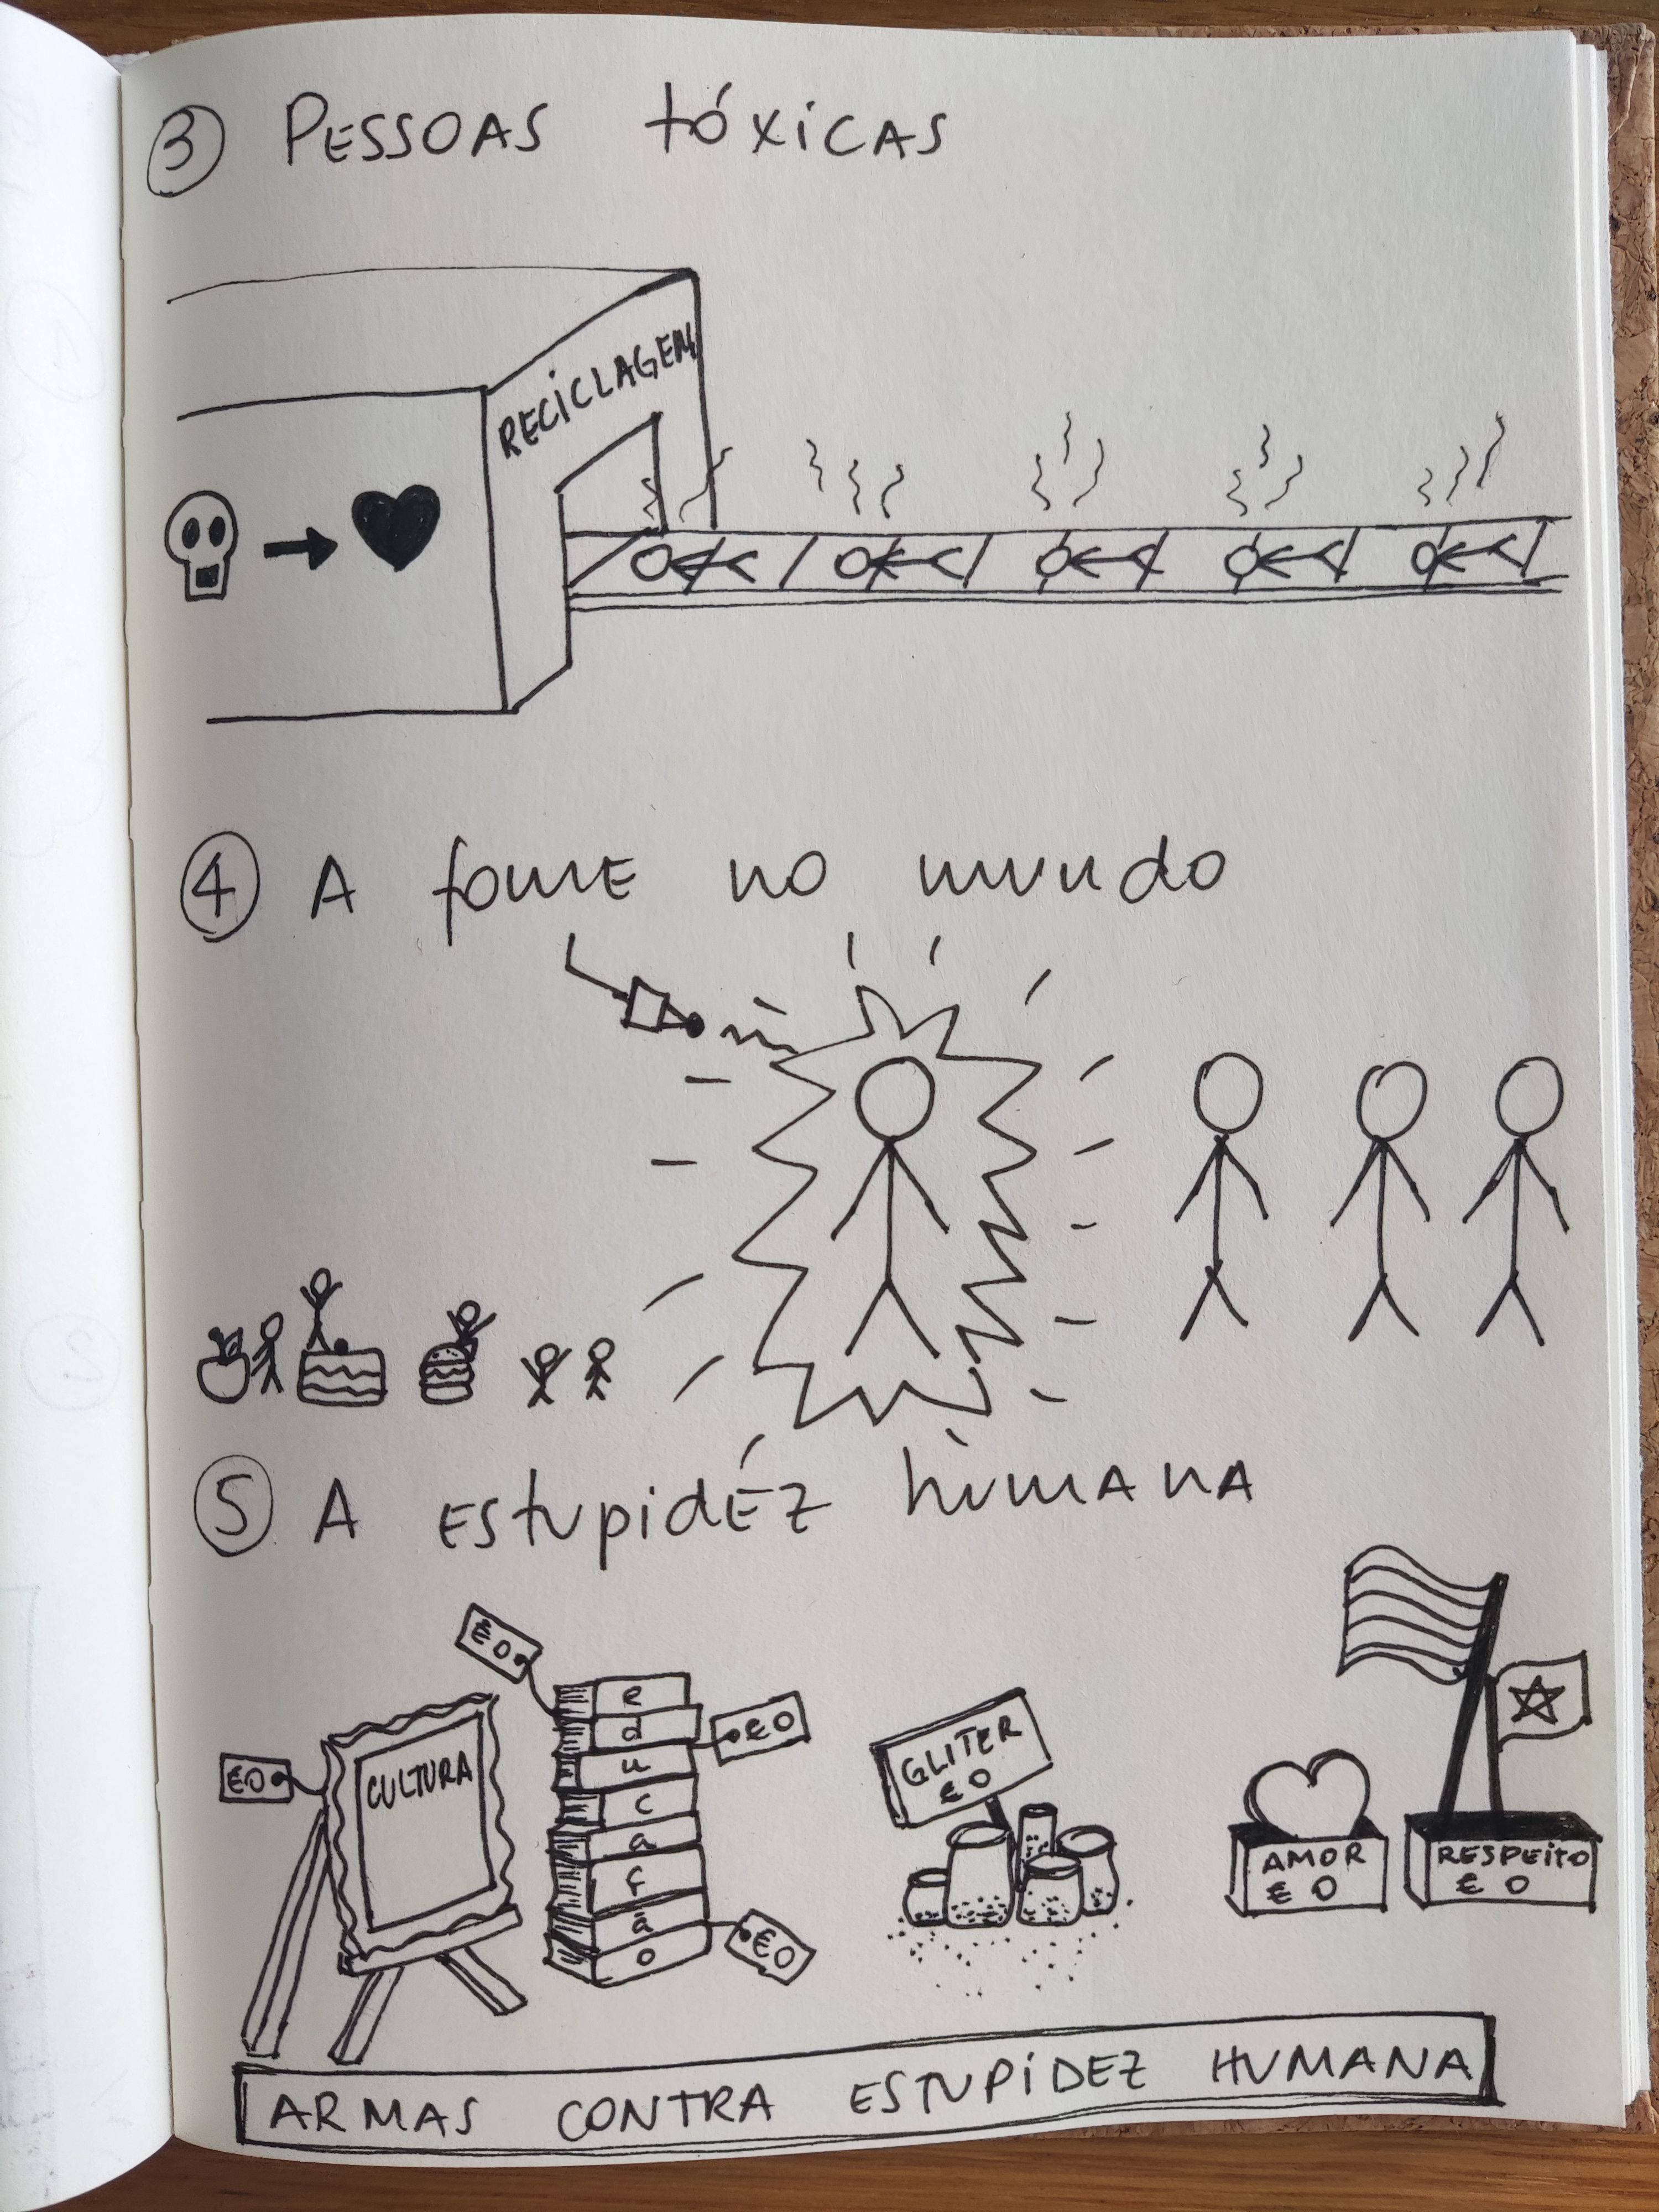 ③ PESSOAS tóxicAS
RECiCLAGEM
④ A fome no mundo
⑤ A EStupidÉz humANA
€0
€0
CULTURA
e
d
u
c
a
ç
ã
o
€0
€0
GLiTER
€ 0
AMOR
€ 0
RESPEiTO
€ 0
ARMAS CONTRA ESTUPiDEZ HUMANA